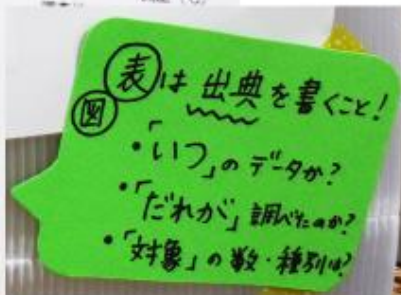 表は出典を書くこと！
図
・「いつ」のデータか？
・「だれが」調べたのか？
・「対象」の数・種別は？